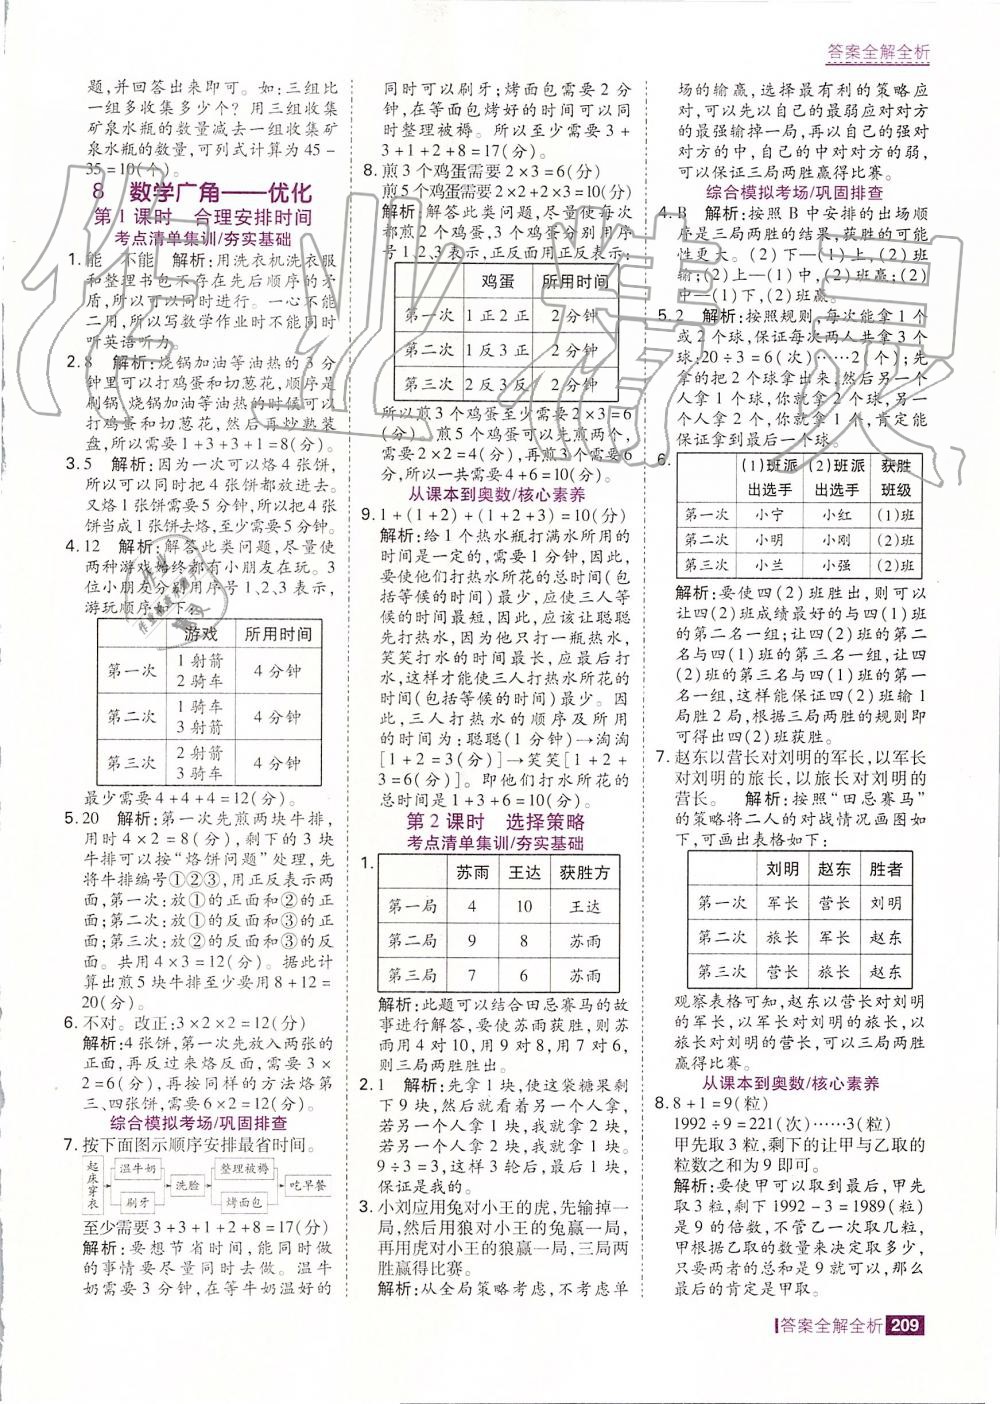 答案全解全析
题,并回答出来即可。如:三组比
一组多收集多少个？用三组收集
矿泉水瓶的数量减去一组收集矿
泉水瓶的数量,可列式计算为45-
35=10(个)。
8 数学广角——优化
第1课时 合理安排时间
考点清单集训/夯实基础
1.能 不能 解析:用洗衣机洗衣服
和整理书包不存在先后顺序的矛
盾,所以可以同时进行。一心不能
二用,所以写数学作业时不能同时
听英语听力。
2.8 解析:烧锅加油等油热的3分
钟里可以打鸡蛋和切葱花,顺序是
刷锅 烧锅加油等油热的同时可以
打鸡蛋和切葱花,然后再炒熟装
盘,所以需要1+3+3+1=8(分)。
3.5 解析:因为一次可以烙4张饼,
所以可以同时把4张饼都放进去。
又烙1张饼需要5分钟,所以把4张
饼当成1张饼去烙,至少需要5分钟。
4.12 解析:解答此类问题,尽量使
两种游戏始终都有小朋友在玩。3
位小朋友分别用序号1、2、3表示,
游玩顺序如下:
游戏 所用时间
第一次 1射箭 2骑车 4分钟
第二次 1骑车 3射箭 4分钟
第三次 2射箭 3骑车 4分钟
最少需要4+4+4=12(分)。
5.20 解析:第一次先煎两块牛排,
用时4×2=8(分),剩下的3块
牛排可以按“烙饼问题”处理,先
将牛排编号①②③,用正反表示两
面,第一次:放①的正面和②的正
面;第二次:放①的反面和③的正
面;第三次:放②的反面和③的反
面。共用4×3=12(分)。据此计
算出煎5块牛排至少要用8+12=
20(分)。
6.不对。改正:3×2×2=12(分)
解析:4张饼,第一次先放入两张的
正面,再反过来烙反面,需要3×
2=6(分),再按同样的方法烙第
三、四张饼,需要3×2×2=12(分)。
综合模拟考场/巩固排查
7.按下面图示顺序安排最省时间。
起床穿衣 温牛奶 刷牙 洗脸 整理被褥 烤面包 吃早餐
至少需要3+3+1+2+8=17(分)
解析:要想节省时间,能同时做
的事情要尽量同时去做。温牛
奶需要3分钟,在等牛奶温好的
同时可以刷牙;烤面包需要2分
钟,在等面包烤好的时间可以同
时整理被褥。所以至少需要3+
3+1+2+8=17(分)。
8.煎3个鸡蛋需要2×3=6(分)
煎5个鸡蛋需要2×2+2×3=10(分)
解析:解答此类问题,尽量使每次
都煎2个鸡蛋,3个鸡蛋分别用序
号1、2、3表示,正反面用正反表示:
鸡蛋 所用时间
第一次 1正2正 2分钟
第二次 1反3正 2分钟
第三次 2反3反 2分钟
所以煎3个鸡蛋至少需要2×3=6
(分)。煎5个鸡蛋可以先煎两个,
需要4分钟,再煎3个需要6分钟,
所以一共需要4+6=10(分)。
从课本到奥数/核心素养
9.1+(1+2)+(1+2+3)=10(分)
解析:给1个热水瓶打满水所用的
时间是一定的,需要1分钟,因此,
要使他们打热水所花的总时间(包
括等候的时间)最少,应使三人等
候的时间最少,因此,应该让聪聪
先打热水,因为他只打一瓶热水,
笑笑打水的时间最长,应最后打
水,这样才能使三人打热水所花的
时间(包括等候的时间)最少。因
此,三人打热水的顺序及所用
的时间为:聪聪(1分钟)→淘淘
[1+2=3(分)]→笑笑[1+2+
3=6(分)]。即他们打水所花的
总时间是1+3+6=10(分)。
第2课时 选择策略
考点清单集训/夯实基础
1.
苏雨 王达 获胜方
第一局 4 10 王达
第二局 9 8 苏雨
第三局 7 6 苏雨
解析:此题可以结合田忌赛马的故
事进行解答,要使苏雨获胜,则苏
雨用4对10,用9对8,用7对6,
则三局两胜胜出。
2.1 解析:先拿1块,使这袋糖果剩
下9块,然后就看另一个人拿,
若另一个人拿1块,我就拿2块,
若另一个人拿2块,我就拿1块。
9÷3=3,这样3轮后,最后1块,
保证是我的。
3.小刘应用兔对小王的虎,先输掉一
局,然后用狼对小王的兔赢一局,
再用虎对小王的狼赢一局,三局两
胜赢得比赛。
解析:从全局策略考虑,不考虑单
场的输赢,选择最有利的策略应
对,可以先以自己的最弱应对对方
的最强输掉一局,再以自己的强对
对方的中,自己的中对对方的弱,
可以保证三局两胜赢得比赛。
综合模拟考场/巩固排查
4.B 解析:按照B中安排的出场顺
序是三局两胜的结果,获胜的可能
性更大。(2)下—(1)上,(2)班
输;(2)上—(1)中,(2)班赢;(2)
中—(1)下,(2)班赢。
5.2 解析:按照规则,每次能拿1个
或2个球,保证每次两人共拿3个
球:20÷3=6(次)……2(个);先
拿的把2个球拿出来,然后另一个
人拿1个球,你就拿2个球,另一
个人拿2个球,你就拿1个,肯定能
保证拿到最后一个球。
6.
(1)班派出选手 (2)班派出选手 获胜班级
第一次 小宁 小红 (1)班
第二次 小明 小刚 (2)班
第三次 小兰 小强 (2)班
解析:要使四(2)班胜出,则可以
让四(2)班成绩最好的与四(1)班
的第二名一组;让四(2)班的第二
名与四(1)班的第三名一组,让四
(2)班的第三名与四(1)班的第一
名一组,这样能保证四(2)班输1
局胜2局,根据三局两胜的规则即
可得出四(2)班获胜。
7.赵东以营长对刘明的军长,以军长
对刘明的旅长,以旅长对刘明的
营长。 解析:按照“田忌赛马”
的策略将二人的对战情况画图如
下,可画出表格如下:
刘明 赵东 胜者
第一次 军长 营长 刘明
第二次 旅长 军长 赵东
第三次 营长 旅长 赵东
观察表格可知,赵东以营长对刘明
的军长,以军长对刘明的旅长,以
旅长对刘明的营长,可以三局两胜
赢得比赛。
从课本到奥数/核心素养
8.8+1=9(粒)
1992÷9=221(次)……3(粒)
甲先取3粒,剩下的让甲与乙取的
粒数之和为9即可。
解析:要使甲可以取到最后,甲先
取3粒,剩下1992-3=1989(粒)
是9的倍数,不管乙一次取几粒,
甲根据乙取的数量来决定取多少,
只要两者的总和是9就可以,那么
最后的肯定是甲取。
答案全解全析 209